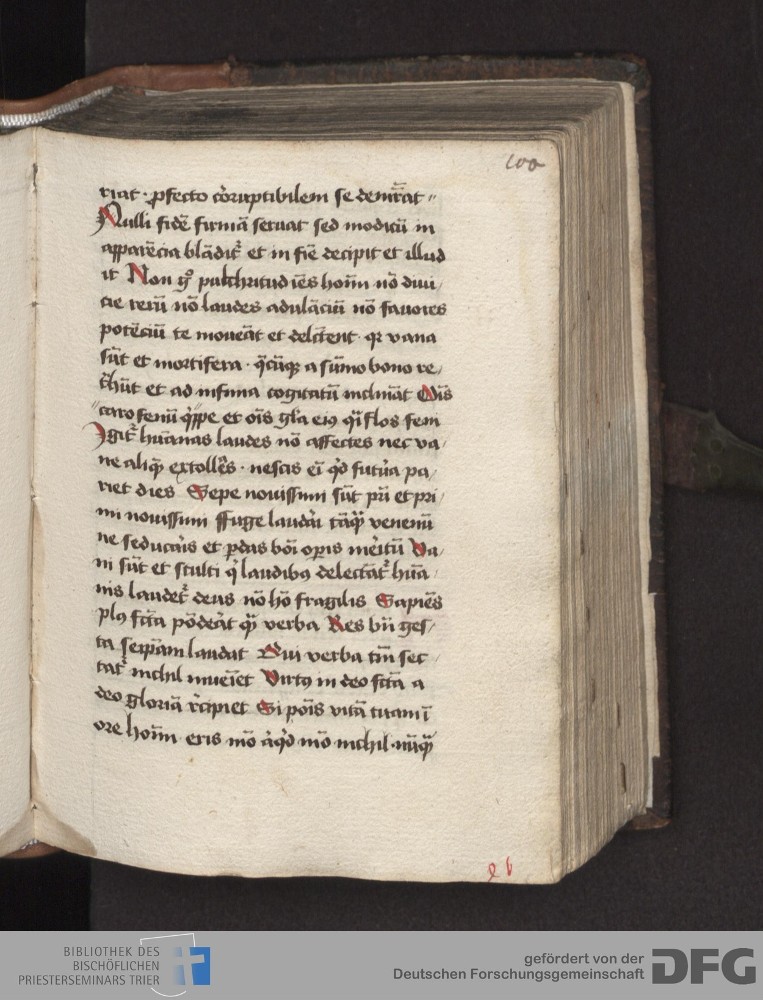 100
riat · ꝓfecto corruptibilem se demr̄at
Nulli fidē firmā seruat sed modicū in
apparēcia blādit᷑ et in fīe decipit et illud
it Non gͦ pulchritudīes hoīm nō diui
cie rerū nō laudes adulāciū nō fauores
potēciū te moueāt et delc̄tent · qꝛ vana
sūt et mortifera · q̄cūqꝫ a sūmo bono re
t̓hūt et ad infima cogitatū inclināt Oīs
caro fenū qͥppe et oīs gl̄a eiꝰ qͣi flos feni
Igit᷑ hūanas laudes nō affectes nec va
ne aliqͣ extollēs · nescis eī qͥd futūa pa
riet dies Sepe nouissimi sūt pͥi et pri
mi nouissimi ffuge laudāi tāqͣ venenū
ne seducāis et ꝑdas boī oꝑis mēitū Va
ni sūt et stulti qͥ laudibꝰ delectāt᷑ hūa
nis laudet᷑ deus nō hō fragilis Sapiēs
plꝰ fc̄ta pōdeāt qͣ verba Res bn̄ ges
ta seip̄am laudat Qui verba tm̄ sec
tat᷑ nichil inueīet Virtꝰ in deo fc̄ta a
deo gloriā r̓cipiet Si poīs vitā tuam ī
ore hoīm eris mō aqͥd mō nichil · nūqͣ
l b
BIBLIOTHEK DES
BISCHÖFLICHEN
PRIESTERSEMINARS TRIER
gefördert von der
Deutschen Forschungsgemeinschaft
DFG